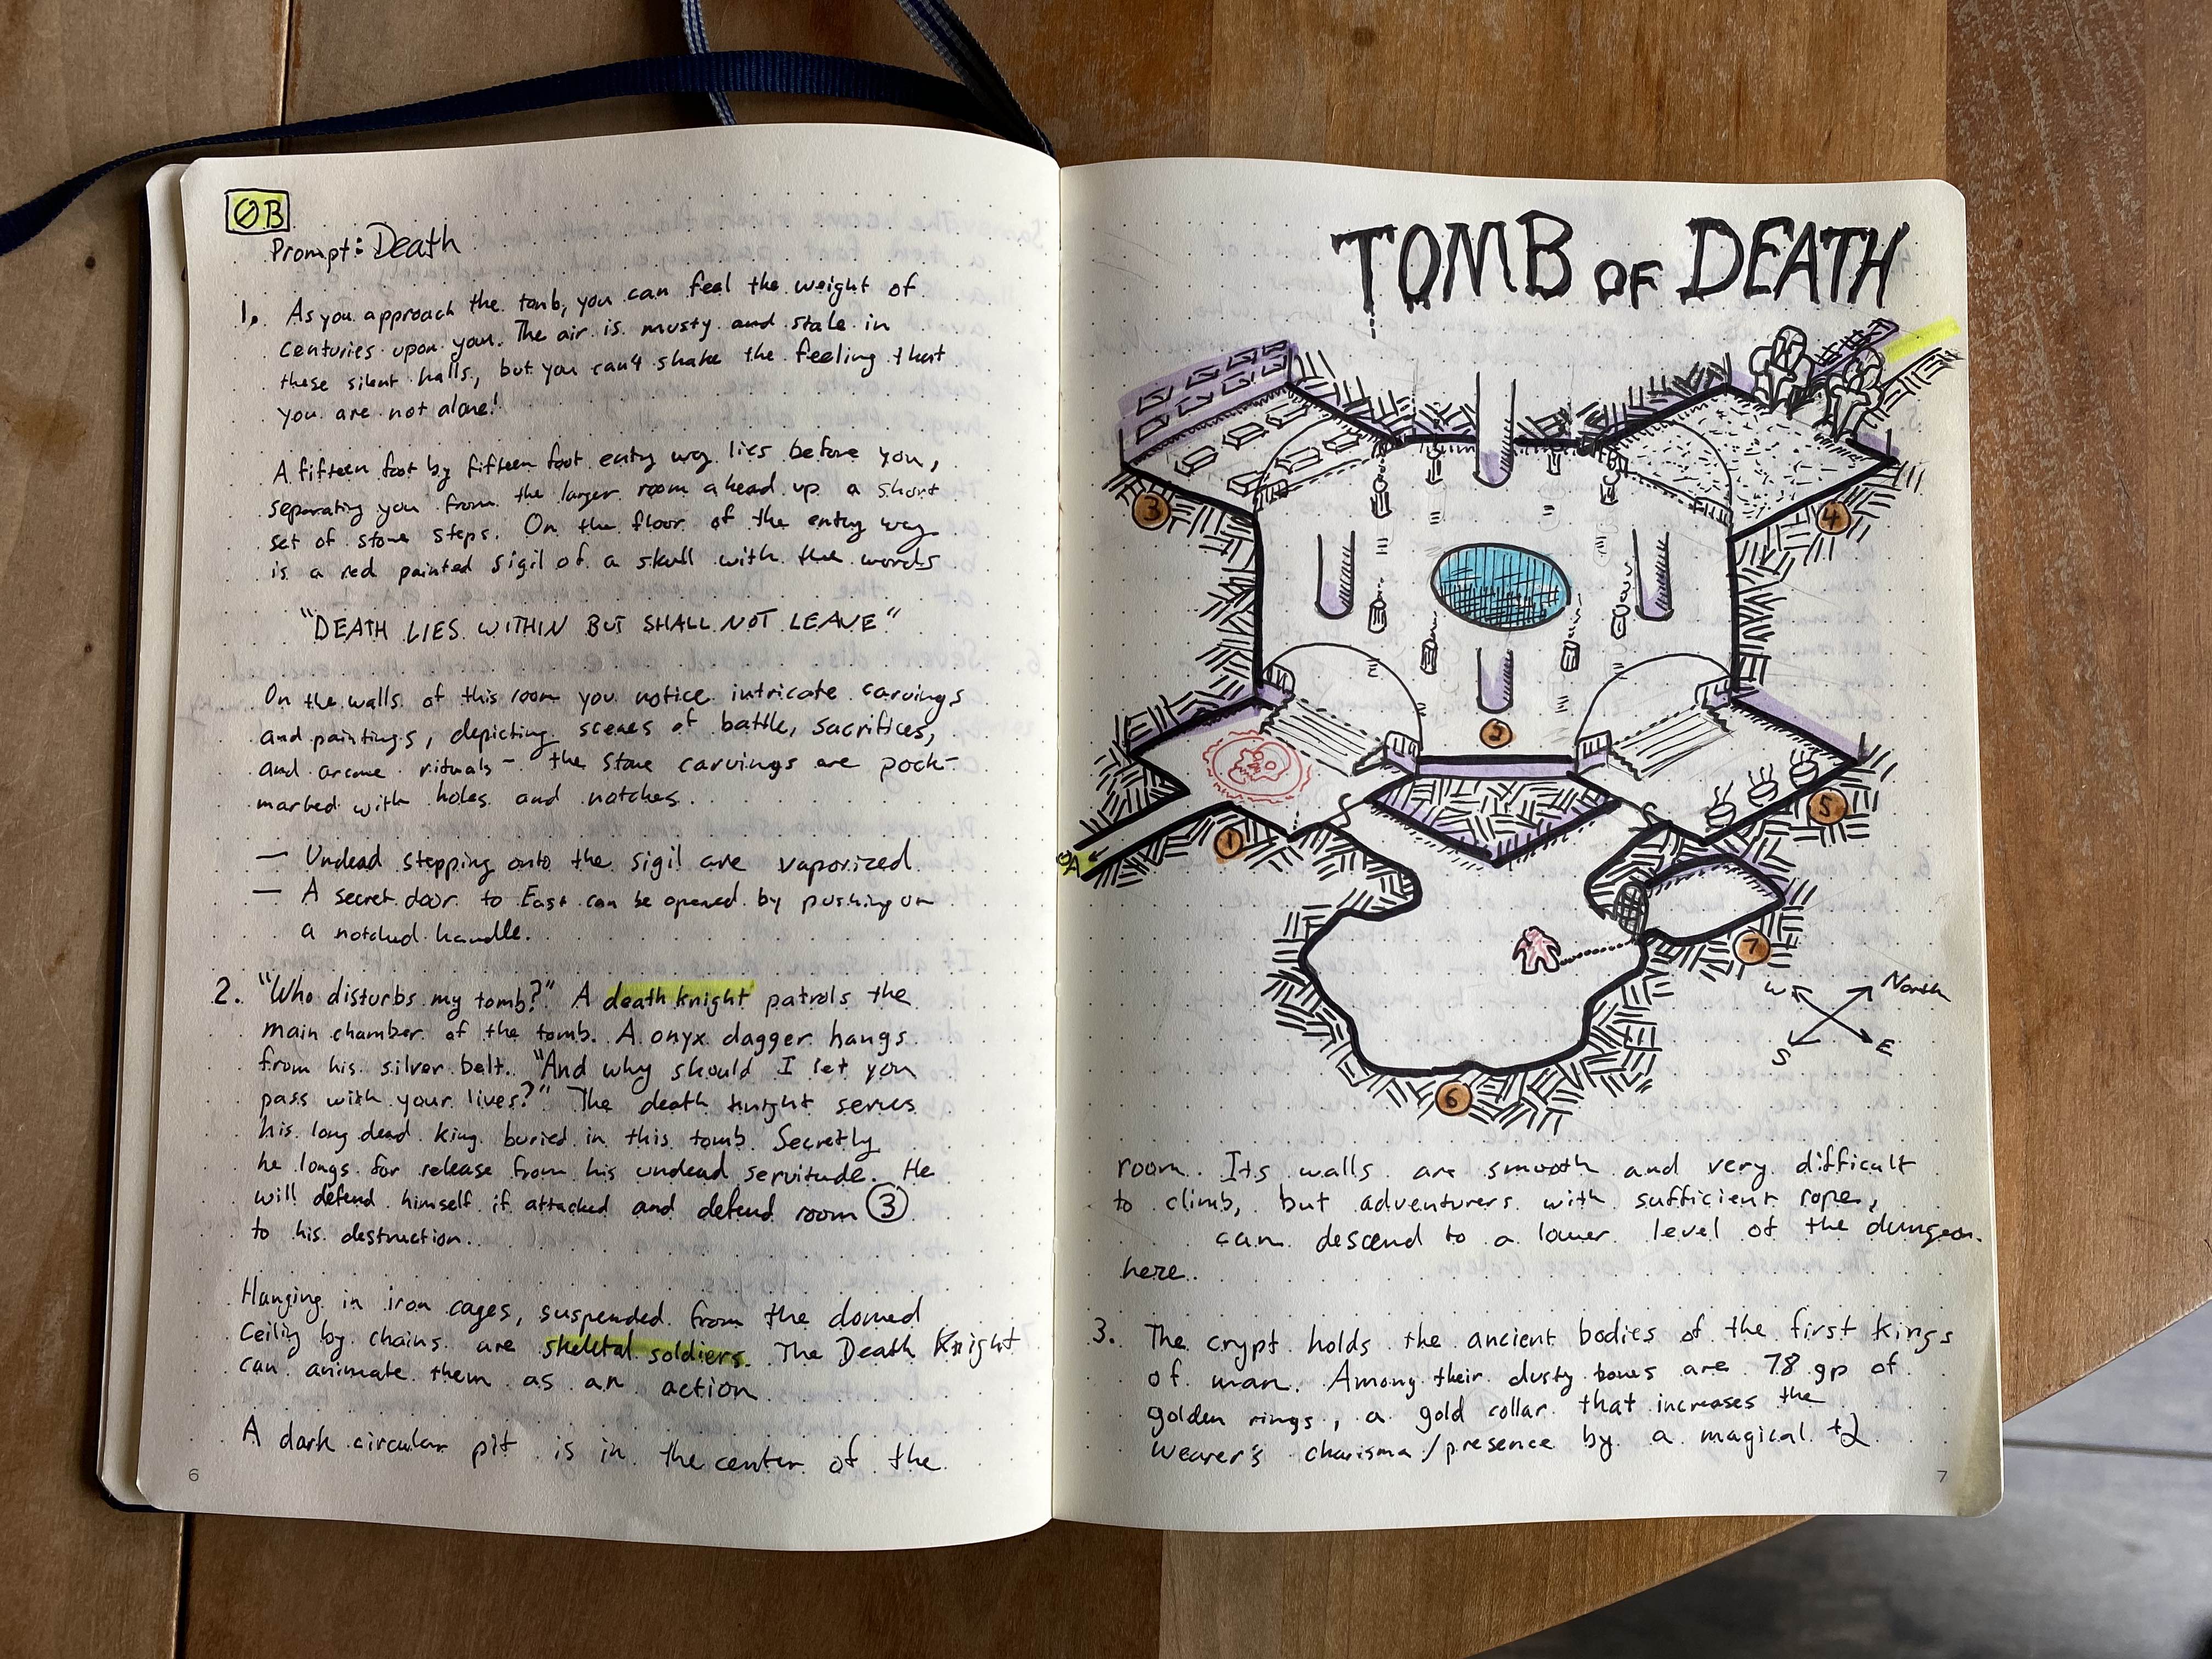 ØB
Prompt: Death
1. As you approach the tomb, you can feel the weight of
centuries upon you. The air is musty and stale in
these silent halls, but you can't shake the feeling that
you are not alone!
A fifteen foot by fifteen foot entry way lies before you,
separating you from the larger room ahead up a short
set of stone steps. On the floor of the entry way
is a red painted sigil of a skull with the words
"DEATH LIES WITHIN BUT SHALL NOT LEAVE"
On the walls of this room you notice intricate carvings
and paintings, depicting scenes of battle, sacrifices,
and arcane rituals - the stone carvings are pock-
marked with holes and notches.
— Undead stepping onto the sigil are vaporized
— A secret door to East can be opened by pushing on
a notched handle.
2. "Who disturbs my tomb?" A death knight patrols the
main chamber of the tomb. A onyx dagger hangs
from his silver belt. "And why should I let you
pass with your lives?" The death knight serves
his long dead king buried in this tomb. Secretly
he longs for release from his undead servitude. He
will defend himself if attacked and defend room 3
to his destruction.
Hanging in iron cages, suspended from the domed
ceiling by chains are skeletal soldiers. The Death Knight
can animate them as an action
A dark circular pit is in the center of the
6
TOMB OF DEATH
3
4
2
1
5
ØA
7
W
North
S
E
6
room. Its walls are smooth and very difficult
to climb, but adventurers with sufficient rope,
can descend to a lower level of the dungeon
here.
3. The crypt holds the ancient bodies of the first kings
of man. Among their dusty bones are 78 gp of
golden rings, a gold collar that increases the
wearer's charisma/presence by a magical +2
7